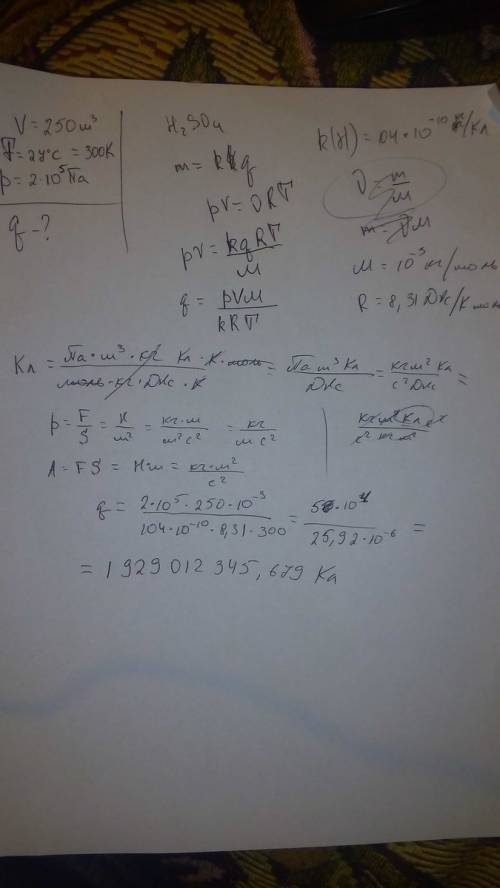 V = 250 м³
T = 27°C = 300K
p = 2·10⁵ Па
q - ?
H₂SO₄
m = kq
pV = νRT
pV = kqRT/M
q = pVM/kRT
M = 10⁻³ кг/моль
R = 8,31 Дж/К моль
Кл = Па·м³·кг Кл·К·моль/моль·кг·Дж·К = Па м³ Кл/Дж = кг м² Кл/с² Дж =
p = F/S = Н/м² = кг·м/м² с² = кг/м с²
A = FS = Н·м = кг·м²/с²
q = 2·10⁵·250·10⁻³/104·10⁻¹⁰·8,31·300 = 5·10⁴/25,92·10⁻⁶ =
= 1 929 012 345,679 Кл